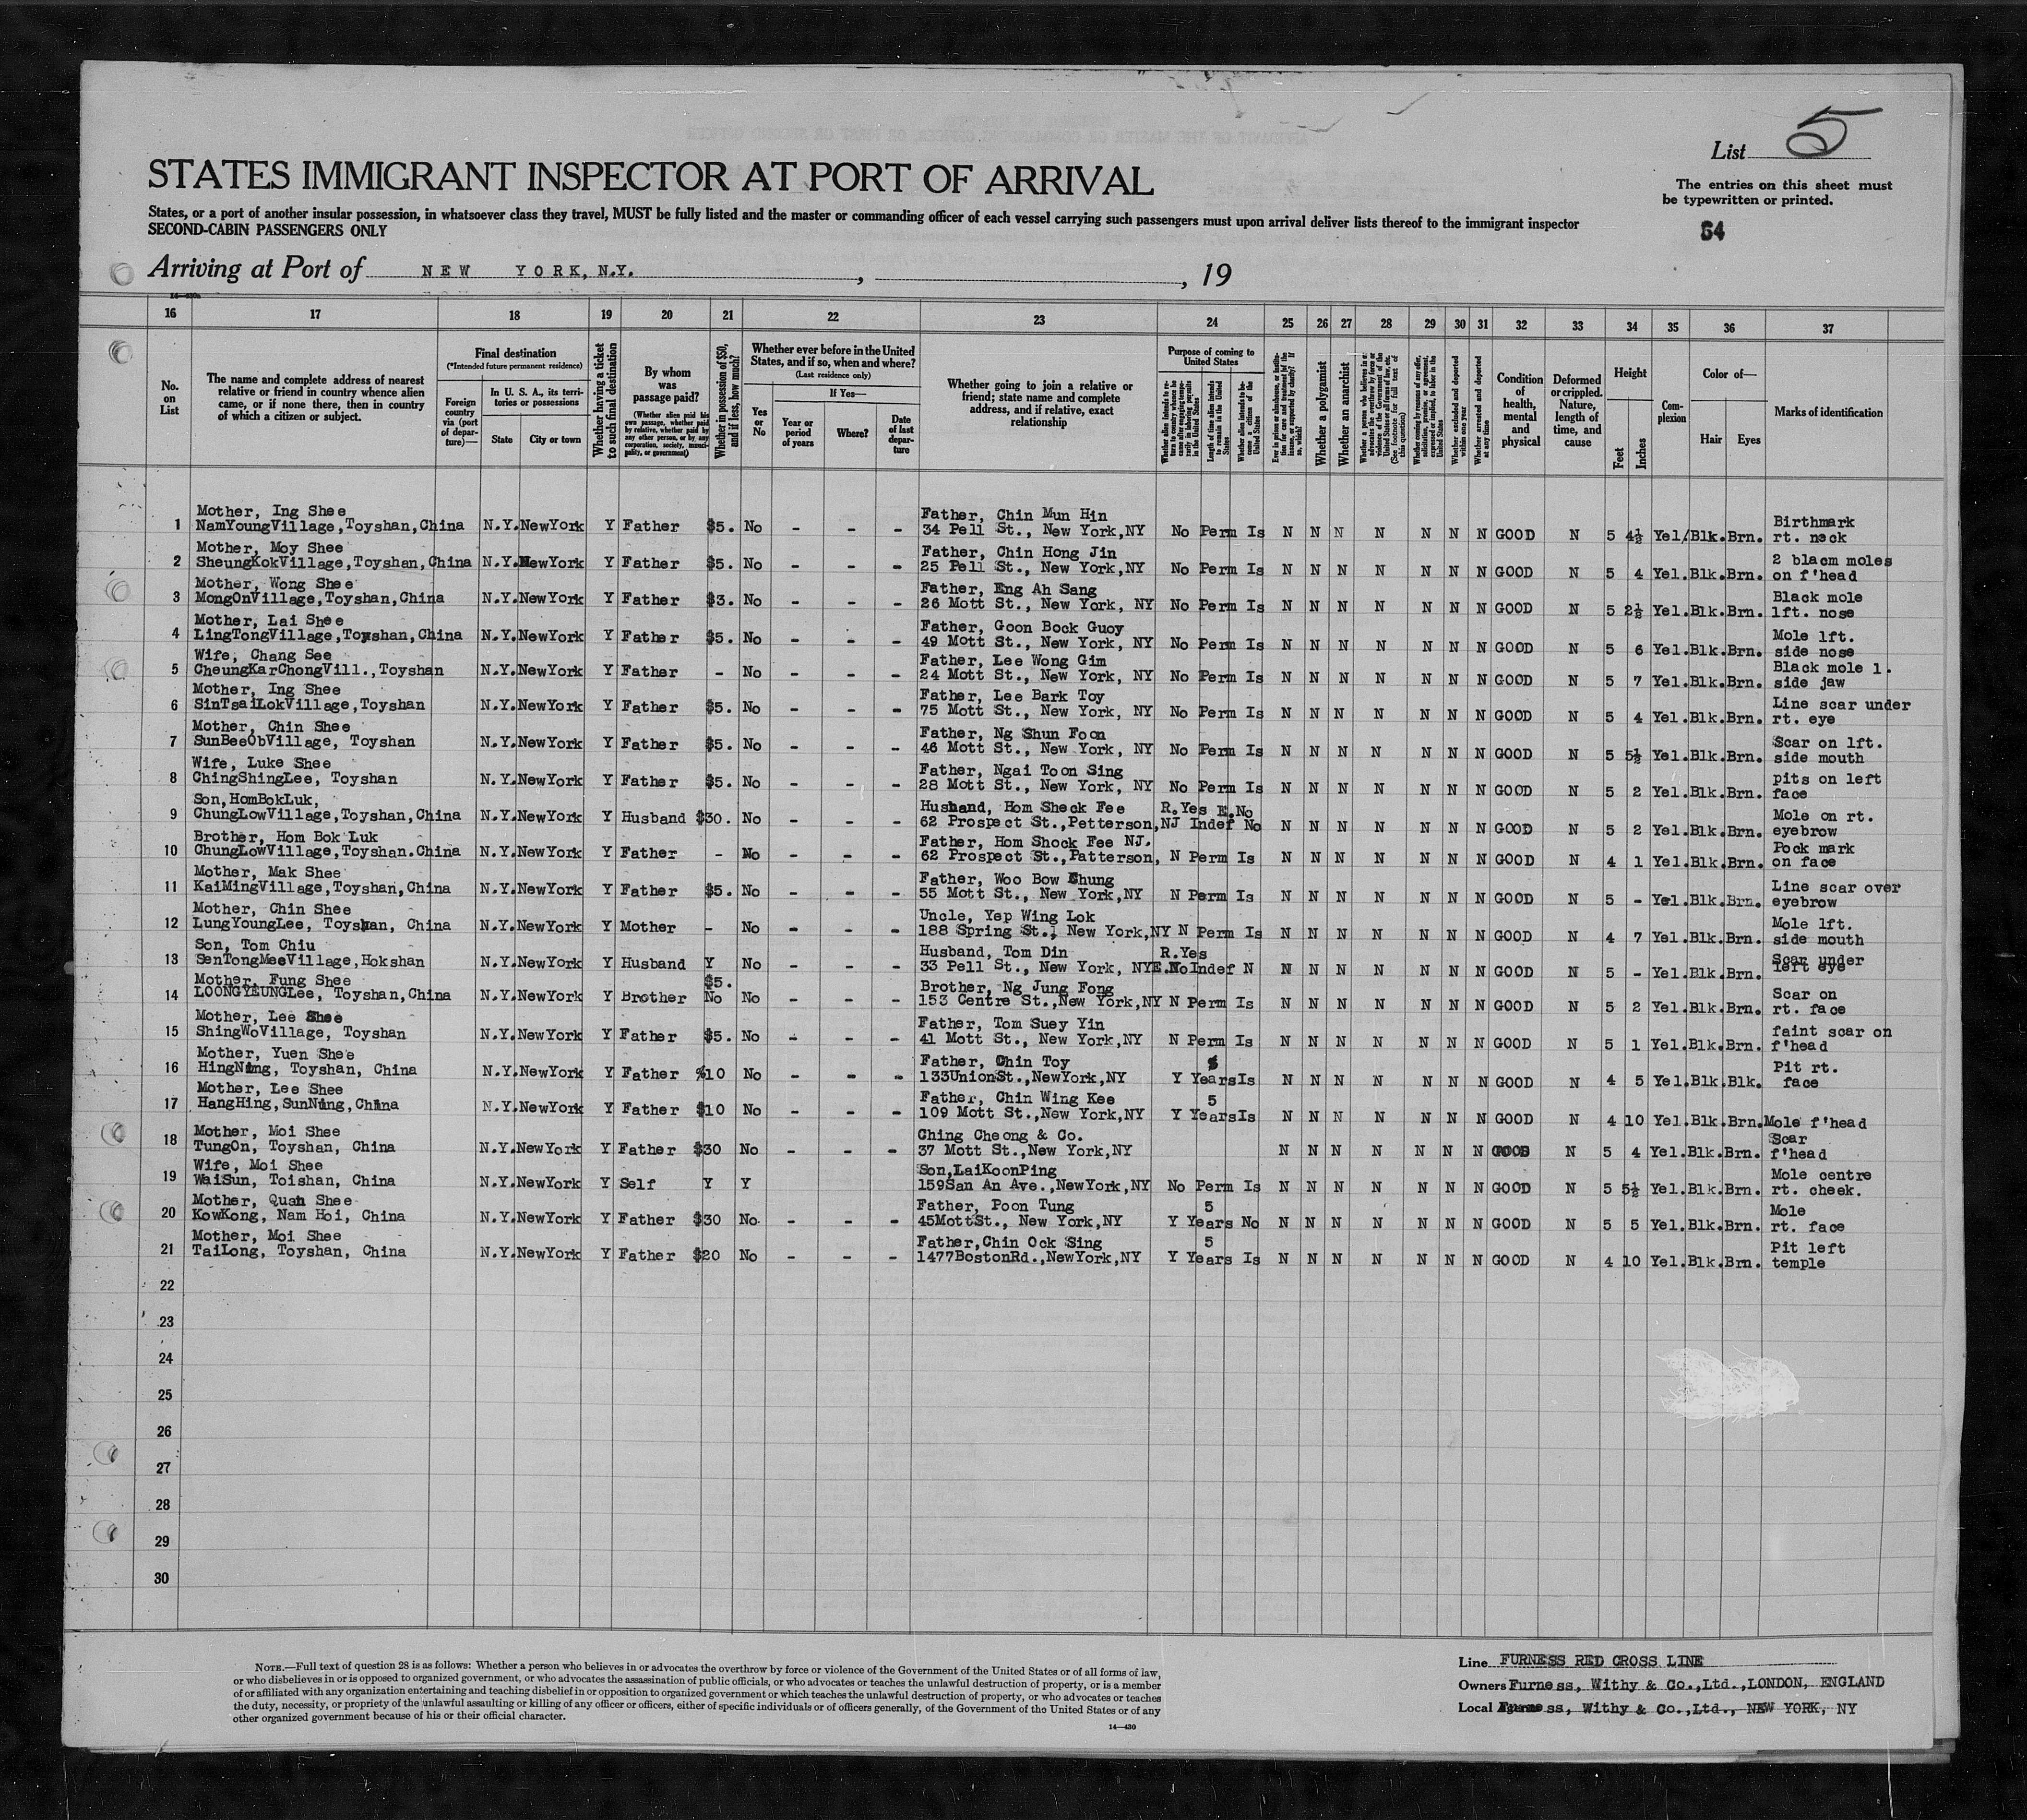 List 5
STATES IMMIGRANT INSPECTOR AT PORT OF ARRIVAL
The entries on this sheet must
be typewritten or printed.
States, or a port of another insular possession, in whatsoever class they travel, MUST be fully listed and the master or commanding officer of each vessel carrying such passengers must upon arrival deliver lists thereof to the immigrant inspector
SECOND-CABIN PASSENGERS ONLY
64
Arriving at Port of NEW YORK, N.Y. , , 19
16 17 18 19 20 21 22 23 24 25 26 27 28 29 30 31 32 33 34 35 36 37
No. on List
The name and complete address of nearest relative or friend in country whence alien came, or if none there, then in country of which a citizen or subject.
Final destination
(*Intended future permanent residence)
Foreign country via (port of departure)—
In U. S. A., its territories or possessions
State
City or town
Whether having a ticket to such final destination
By whom was passage paid?
(Whether alien paid his own passage, whether paid by relative, whether paid by any other person, or by any corporation, society, municipality, or government)
Whether in possession of $50, and if less, how much?
Whether ever before in the United States, and if so, when and where?
(Last residence only)
Yes or No
If Yes—
Year or period of years
Where?
Date of last departure
Whether going to join a relative or friend; state name and complete address, and if relative, exact relationship
Purpose of coming to United States
Length of time alien intends to remain in the United States
Whether alien intends to become a citizen of the United States
Whether a polygamist
Whether an anarchist
Whether excluded and deported within one year
Whether arrested and deported at any time
Condition of health, mental and physical
Deformed or crippled. Nature, length of time, and cause
Height
Feet
Inches
Complexion
Color of—
Hair
Eyes
Marks of identification
Mother, Ing Shee Father, Chin Mun Hin Birthmark
1 NamYoungVillage,Toyshan,China N.Y. NewYork Y Father $5. No - - - 34 Pell St., New York,NY No Perm Is N N N N N N N GOOD N 5 4½ Yel/Blk.Brn. rt. neck
Mother, Moy Shee Father, Chin Hong Jin 2 blacm moles
2 SheungKokVillage,Toyshan,China N.Y. NewYork Y Father $5. No - - - 25 Pell St., New York,NY No Perm Is N N N N N N N GOOD N 5 4 Yel.Blk.Brn. on f'head
Mother, Wong Shee Father, Eng Ah Sang Black mole
3 MongOnVillage,Toyshan,China N.Y. NewYork Y Father $3. No - - - 26 Mott St., New York, NY No Perm Is N N N N N N N GOOD N 5 2½ Yel.Blk.Brn. lft. nose
Mother, Lai Shee Father, Goon Bock Guoy Mole lft.
4 LingTongVillage,Toyshan,China N.Y. NewYork Y Father $5. No - - - 49 Mott St., New York, NY No Perm Is N N N N N N N GOOD N 5 6 Yel.Blk.Brn. side nose
Wife, Chang See Father, Lee Wong Gim Black mole l.
5 CheungKarChongVill.,Toyshan N.Y. NewYork Y Father - No - - - 24 Mott St., New York, NY No Perm Is N N N N N N N GOOD N 5 7 Yel.Blk.Brn. side jaw
Mother, Ing Shee Father, Lee Bark Toy Line scar under
6 SinTsaiLokVillage,Toyshan N.Y. NewYork Y Father $5. No - - - 75 Mott St., New York, NY No Perm Is N N N N N N N GOOD N 5 4 Yel.Blk.Brn. rt. eye
Mother, Chin Shee Father, Ng Shun Foon Scar on lft.
7 SunBeeObVillage, Toyshan N.Y. NewYork Y Father $5. No - - - 46 Mott St., New York, NY No Perm Is N N N N N N N GOOD N 5 5½ Yel.Blk.Brn. side mouth
Wife, Luke Shee Father, Ngai Toon Sing pits on left
8 ChingShingLee, Toyshan N.Y. NewYork Y Father $5. No - - - 28 Mott St., New York, NY No Perm Is N N N N N N N GOOD N 5 2 Yel.Blk.Brn. face
Son,HomBokLuk, Husband, Hom Sheck Fee R.Yes E.No Mole on rt.
9 ChungLowVillage,Toyshan,China N.Y. NewYork Y Husband $30. No - - - 62 Prospect St.,Petterson,NJ Indef No N N N N N N N GOOD N 5 2 Yel.Blk.Brn. eyebrow
Brother, Hom Bok Luk Father, Hom Shock Fee NJ. Pock mark
10 ChungLowVillage,Toyshan.China N.Y. NewYork Y Father - No - - - 62 Prospect St.,Patterson, N Perm Is N N N N N N N GOOD N 4 1 Yel.Blk.Brn. on face
Mother, Mak Shee Father, Woo Bow Chung Line scar over
11 KaiMingVillage,Toyshan,China N.Y. NewYork Y Father $5. No - - - 55 Mott St., New York,NY N Perm Is N N N N N N N GOOD N 5 - Yel.Blk.Brn. eyebrow
Mother, Chin Shee Uncle, Yep Wing Lok Mole lft.
12 LungYoungLee, Toyshan, China N.Y. NewYork Y Mother - No - - - 188 Spring St., New York,NY N Perm Is N N N N N N N GOOD N 4 7 Yel.Blk.Brn. side mouth
Son, Tom Chiu Husband, Tom Din R.Yes Scar under
13 SenTongMeeVillage,Hokshan N.Y. NewYork Y Husband Y No - - - 33 Pell St., New York, NY E.No Indef N N N N N N N N GOOD N 5 - Yel.Blk.Brn. left eye
Mother, Fung Shee $5. Brother, Ng Jung Fong Scar on
14 LOONGYEUNGLee, Toyshan,China N.Y. NewYork Y Brother No No - - - 153 Centre St.,New York,NY N Perm Is N N N N N N N GOOD N 5 2 Yel.Blk.Brn. rt. face
Mother, Lee Shee Father, Tom Suey Yin faint scar on
15 ShingWoVillage, Toyshan N.Y. NewYork Y Father $5. No - - - 41 Mott St., New York,NY N Perm Is N N N N N N N GOOD N 5 1 Yel.Blk.Brn. f'head
Mother, Yuen Shee Father, Chin Toy Pit rt.
16 HingNing, Toyshan, China N.Y. NewYork Y Father %10 No - - - 133UnionSt.,NewYork,NY Y Years Is N N N N N N N GOOD N 4 5 Yel.Blk.Blk. face
Mother, Lee Shee Father, Chin Wing Kee 5
17 HangHing,SunNing,China N.Y. NewYork Y Father $10 No - - - 109 Mott St.,New York,NY Y Years Is N N N N N N N GOOD N 4 10 Yel.Blk.Brn. Mole f'head
Mother, Moi Shee Ching Cheong & Co. Scar
18 TungOn, Toyshan, China N.Y. NewYork Y Father $30 No - - - 37 Mott St.,New York,NY N N N N N N N GOOD N 5 4 Yel.Blk.Brn. f'head
Wife, Moi Shee Son,LaiKoonPing Mole centre
19 WaiSun, Toishan, China N.Y. NewYork Y Self Y Y 159San An Ave.,NewYork,NY No Perm Is N N N N N N N GOOD N 5 5½ Yel.Blk.Brn. rt. cheek.
Mother, Quan Shee Father, Poon Tung 5 Mole
20 KowKong, Nam Hoi, China N.Y. NewYork Y Father $30 No. - - - 45MottSt., New York,NY Y Years No N N N N N N N GOOD N 5 5 Yel.Blk.Brn. rt. face
Mother, Moi Shee Father,Chin Ock Sing 5 Pit left
21 TaiLong, Toyshan, China N.Y. NewYork Y Father $20 No - - - 1477BostonRd.,NewYork,NY Y Years Is N N N N N N N GOOD N 4 10 Yel.Blk.Brn. temple
22
23
24
25
26
27
28
29
30
NOTE.—Full text of question 28 is as follows: Whether a person who believes in or advocates the overthrow by force or violence of the Government of the United States or of all forms of law,
or who disbelieves in or is opposed to organized government, or who advocates the assassination of public officials, or who advocates or teaches the unlawful destruction of property, or is a member
of or affiliated with any organization entertaining and teaching disbelief in or opposition to organized government or which teaches the unlawful destruction of property, or who advocates or teaches
the duty, necessity, or propriety of the unlawful assaulting or killing of any officer or officers, either of specific individuals or of officers generally, of the Government of the United States or of any
other organized government because of his or their official character.
14—430
Line FURNESS RED CROSS LINE
Owners Furness, Withy & Co.,Ltd.,LONDON, ENGLAND
Local Furness, Withy & Co.,Ltd., NEW YORK, NY